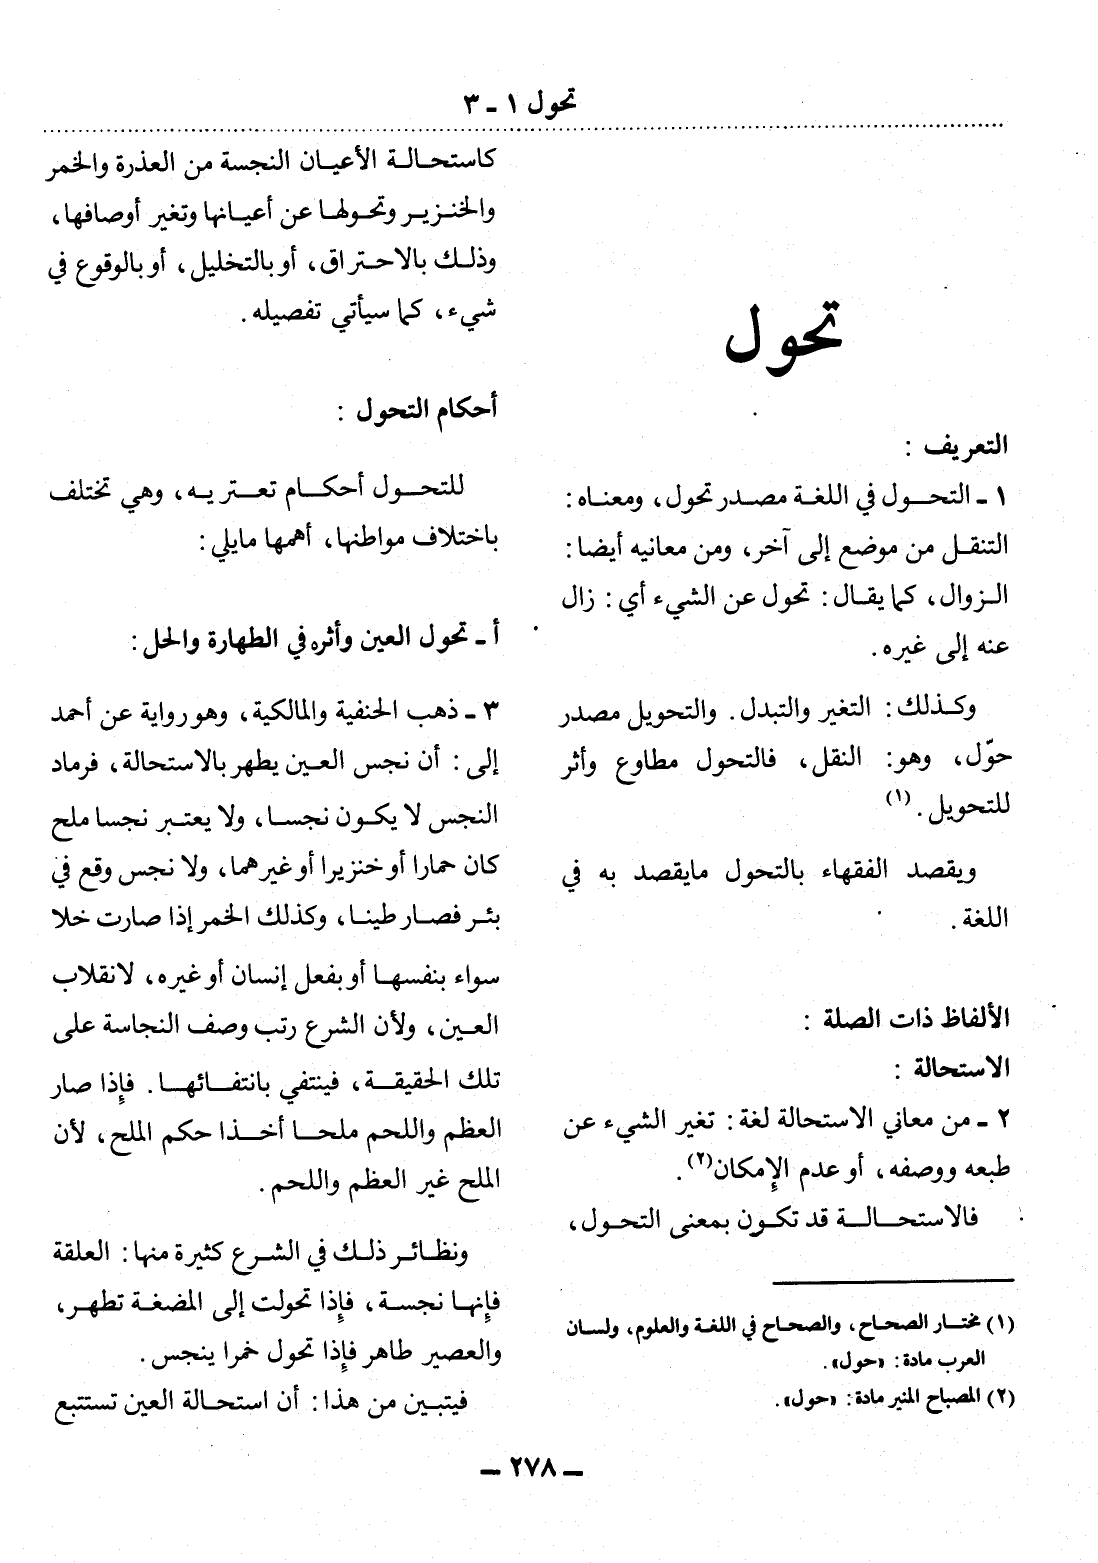 تحول ١ - ٣
تحول
التعريف :
١ - التحول في اللغة مصدر تحول، ومعناه :
التنقل من موضع إلى آخر، ومن معانيه أيضا :
الزوال، كما يقال : تحول عن الشيء أي : زال
عنه إلى غيره .
وكذلك : التغير والتبدل . والتحويل مصدر
حوّل، وهو: النقل، فالتحول مطاوع وأثر
للتحويل . (١)
ويقصد الفقهاء بالتحول مايقصد به في
اللغة .
الألفاظ ذات الصلة :
الاستحالة :
٢ - من معاني الاستحالة لغة : تغير الشيء عن
طبعه ووصفه، أو عدم الإمكان(٢) .
فالاستحالة قد تكون بمعنى التحول،
(١) مختار الصحاح، والصحاح في اللغة والعلوم، ولسان
العرب مادة : «حول» .
(٢) المصباح المنير مادة : «حول» .
كاستحالة الأعيان النجسة من العذرة والخمر
والخنزير وتحولها عن أعيانها وتغير أوصافها،
وذلك بالاحتراق، أو بالتخليل، أو بالوقوع في
شيء، كما سيأتي تفصيله .
أحكام التحول :
للتحول أحكام تعتريه، وهي تختلف
باختلاف مواطنها، أهمها مايلي :
أ - تحول العين وأثره في الطهارة والحل :
٣ - ذهب الحنفية والمالكية، وهو رواية عن أحمد
إلى : أن نجس العين يطهر بالاستحالة، فرماد
النجس لا يكون نجسا، ولا يعتبر نجسا ملح
كان حمارا أو خنزيرا أو غيرهما، ولا نجس وقع في
بئر فصار طينا، وكذلك الخمر إذا صارت خلا
سواء بنفسها أو بفعل إنسان أو غيره، لانقلاب
العين، ولأن الشرع رتب وصف النجاسة على
تلك الحقيقة، فينتفي بانتفائها . فإذا صار
العظم واللحم ملحا أخذا حكم الملح، لأن
الملح غير العظم واللحم .
ونظائر ذلك في الشرع كثيرة منها : العلقة
فإنها نجسة، فإذا تحولت إلى المضغة تطهر،
والعصير طاهر فإذا تحول خمرا ينجس .
فيتبين من هذا : أن استحالة العين تستتبع
- ٢٧٨ -